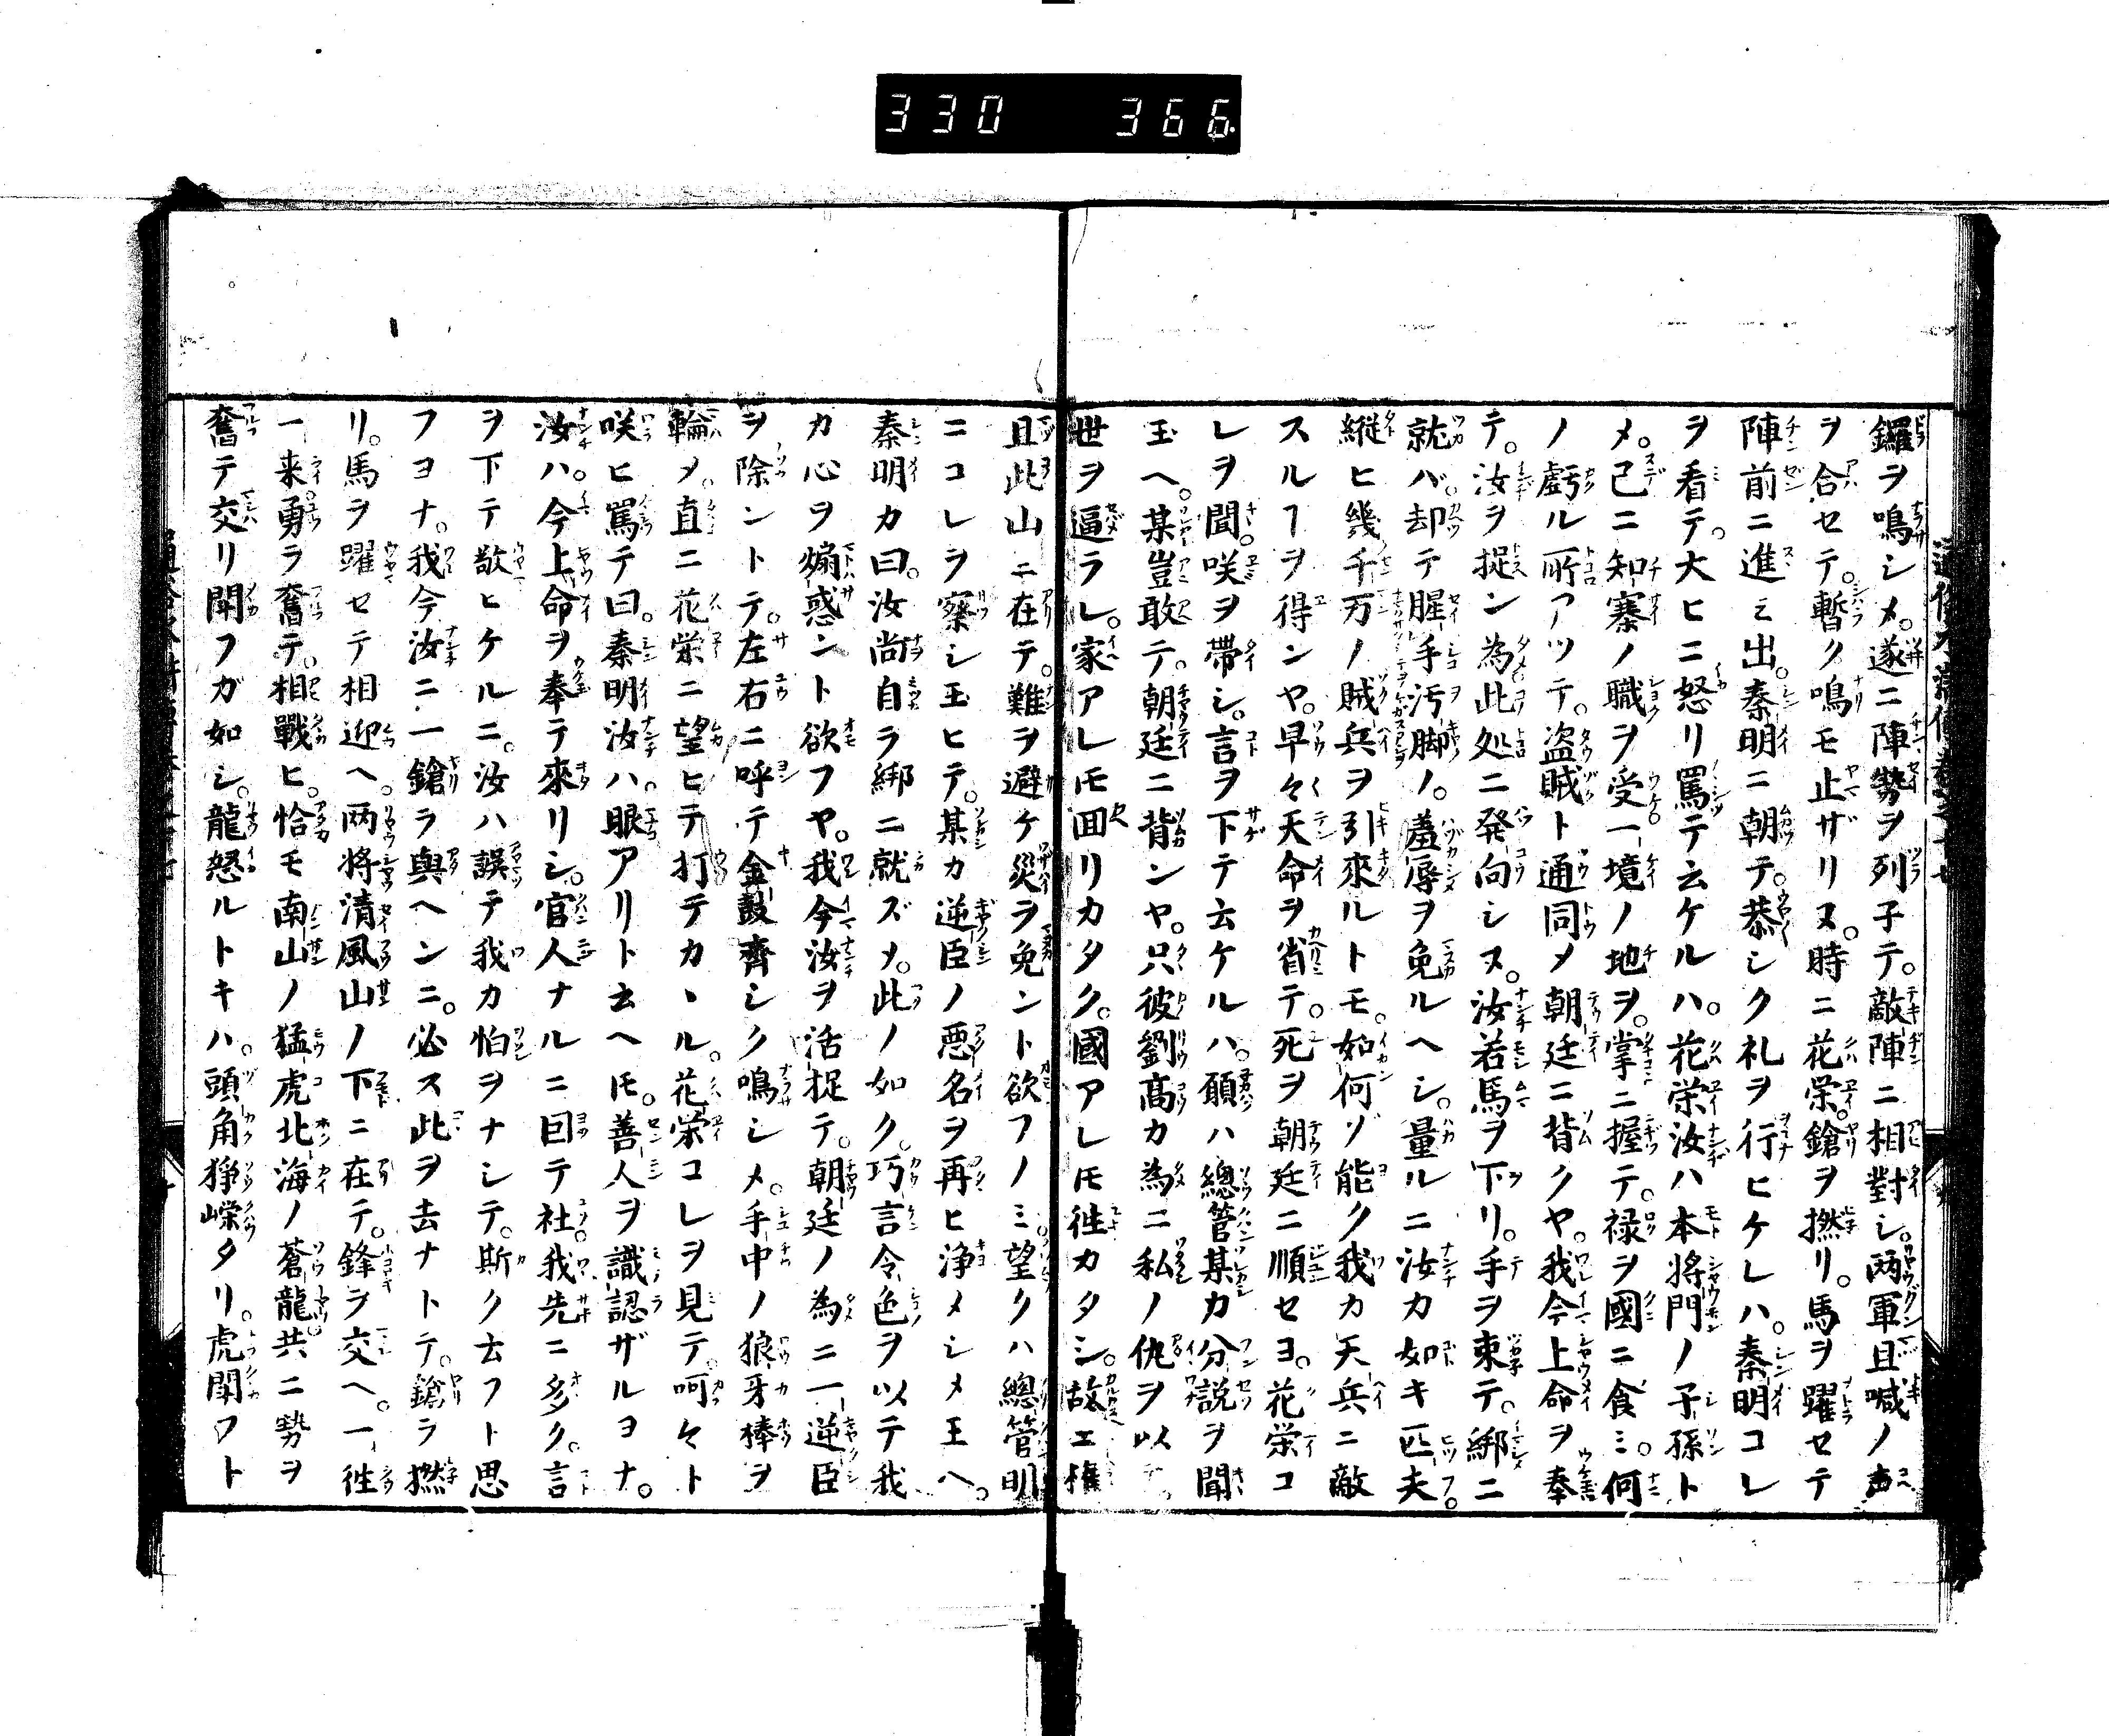 330 366
鑼ヲ鳴シメ。遂ニ陣勢ヲ列子テ。敵陣ニ相對シ。两軍且喊ノ声
ヲ合セテ。暫ク鳴モ止ザリヌ。時ニ花栄。鎗ヲ撚リ。馬ヲ躍セテ
陣前ニ進ミ出。秦明ニ朝テ。恭シク礼ヲ行ヒケレハ。秦明コレ
ヲ看テ。大ヒニ怒リ罵テ云ケルハ。花栄汝ハ本将門ノ子孫ト
メ。已ニ知寨ノ職ヲ受一境ノ地ヲ。掌ニ握テ。禄ヲ國ニ食ミ。何
ノ虧ル所アツテ。盗賊ト通同メ朝廷ニ背クヤ。我今上命ヲ奉
テ。汝ヲ捉ン為此処ニ発向シヌ。汝若馬ヲ下リ。手ヲ束テ。綁ニ
就バ。却テ腥手汚脚ノ。羞辱ヲ免ルヘシ。量ルニ汝カ如キ匹夫。
縦ヒ幾千万ノ賊兵ヲ引來ルトモ。如何ゾ能ク我カ天兵ニ敵
スルヿヲ得ンヤ。早々天命ヲ省テ。死ヲ朝廷ニ順セヨ。花栄コ
レヲ聞。咲ヲ帶シ。言ヲ下テ云ケルハ。願ハ總管某カ分説ヲ聞
玉ヘ。某豈敢テ。朝廷ニ背ンヤ。只彼劉髙カ為ニ私ノ仇ヲ以テ
世ヲ逼ラレ。家アレ𪜈囬リカタク。國アレ𪜈徃カタシ。故エ権
且此山ニ在テ。難ヲ避ケ災ヲ免ント欲フノミ。望クハ總管明
ニコレヲ察シ玉ヒテ。某カ逆臣ノ悪名ヲ再ヒ浄メシメ王ヘ。
秦明カ曰。汝尚自ラ綁ニ就ズメ。此ノ如ク。巧言令色ヲ以テ我
カ心ヲ煽惑ント欲フヤ。我今汝ヲ活捉テ。朝廷ノ為ニ一逆臣
ヲ除ントテ。左右ニ呼テ金鼓齊シク鳴シメ。手中ノ狼牙棒ヲ
輪メ。直ニ花栄ニ望ヒテ打テカヽル。花栄コレヲ見テ。呵々ト
咲ヒ罵テ曰。秦明汝ハ。眼アリト云ヘ𪜈。善人ヲ識認ザルヨナ。
汝ハ。今上命ヲ奉テ來リシ。官人ナルニ回テ社我先ニ多ク。言
ヲ下テ敬ヒケルニ。汝ハ誤テ我カ怕ヲナシテ。斯ク云フト思
フヨナ。我今汝ニ一鎗ラ與ヘンニ。必ス此ヲ去ナトテ。鎗ラ撚
リ。馬ヲ躍セテ相迎ヘ。两将清風山ノ下ニ在テ。鋒ヲ交ヘ。一徃
一来勇ラ奮テ。相戰ヒ。恰モ南山ノ猛虎北海ノ蒼龍共ニ勢ヲ
奮テ交リ鬪フガ如シ。龍怒ルトキハ。頭角猙嶸タリ。虎鬪フト